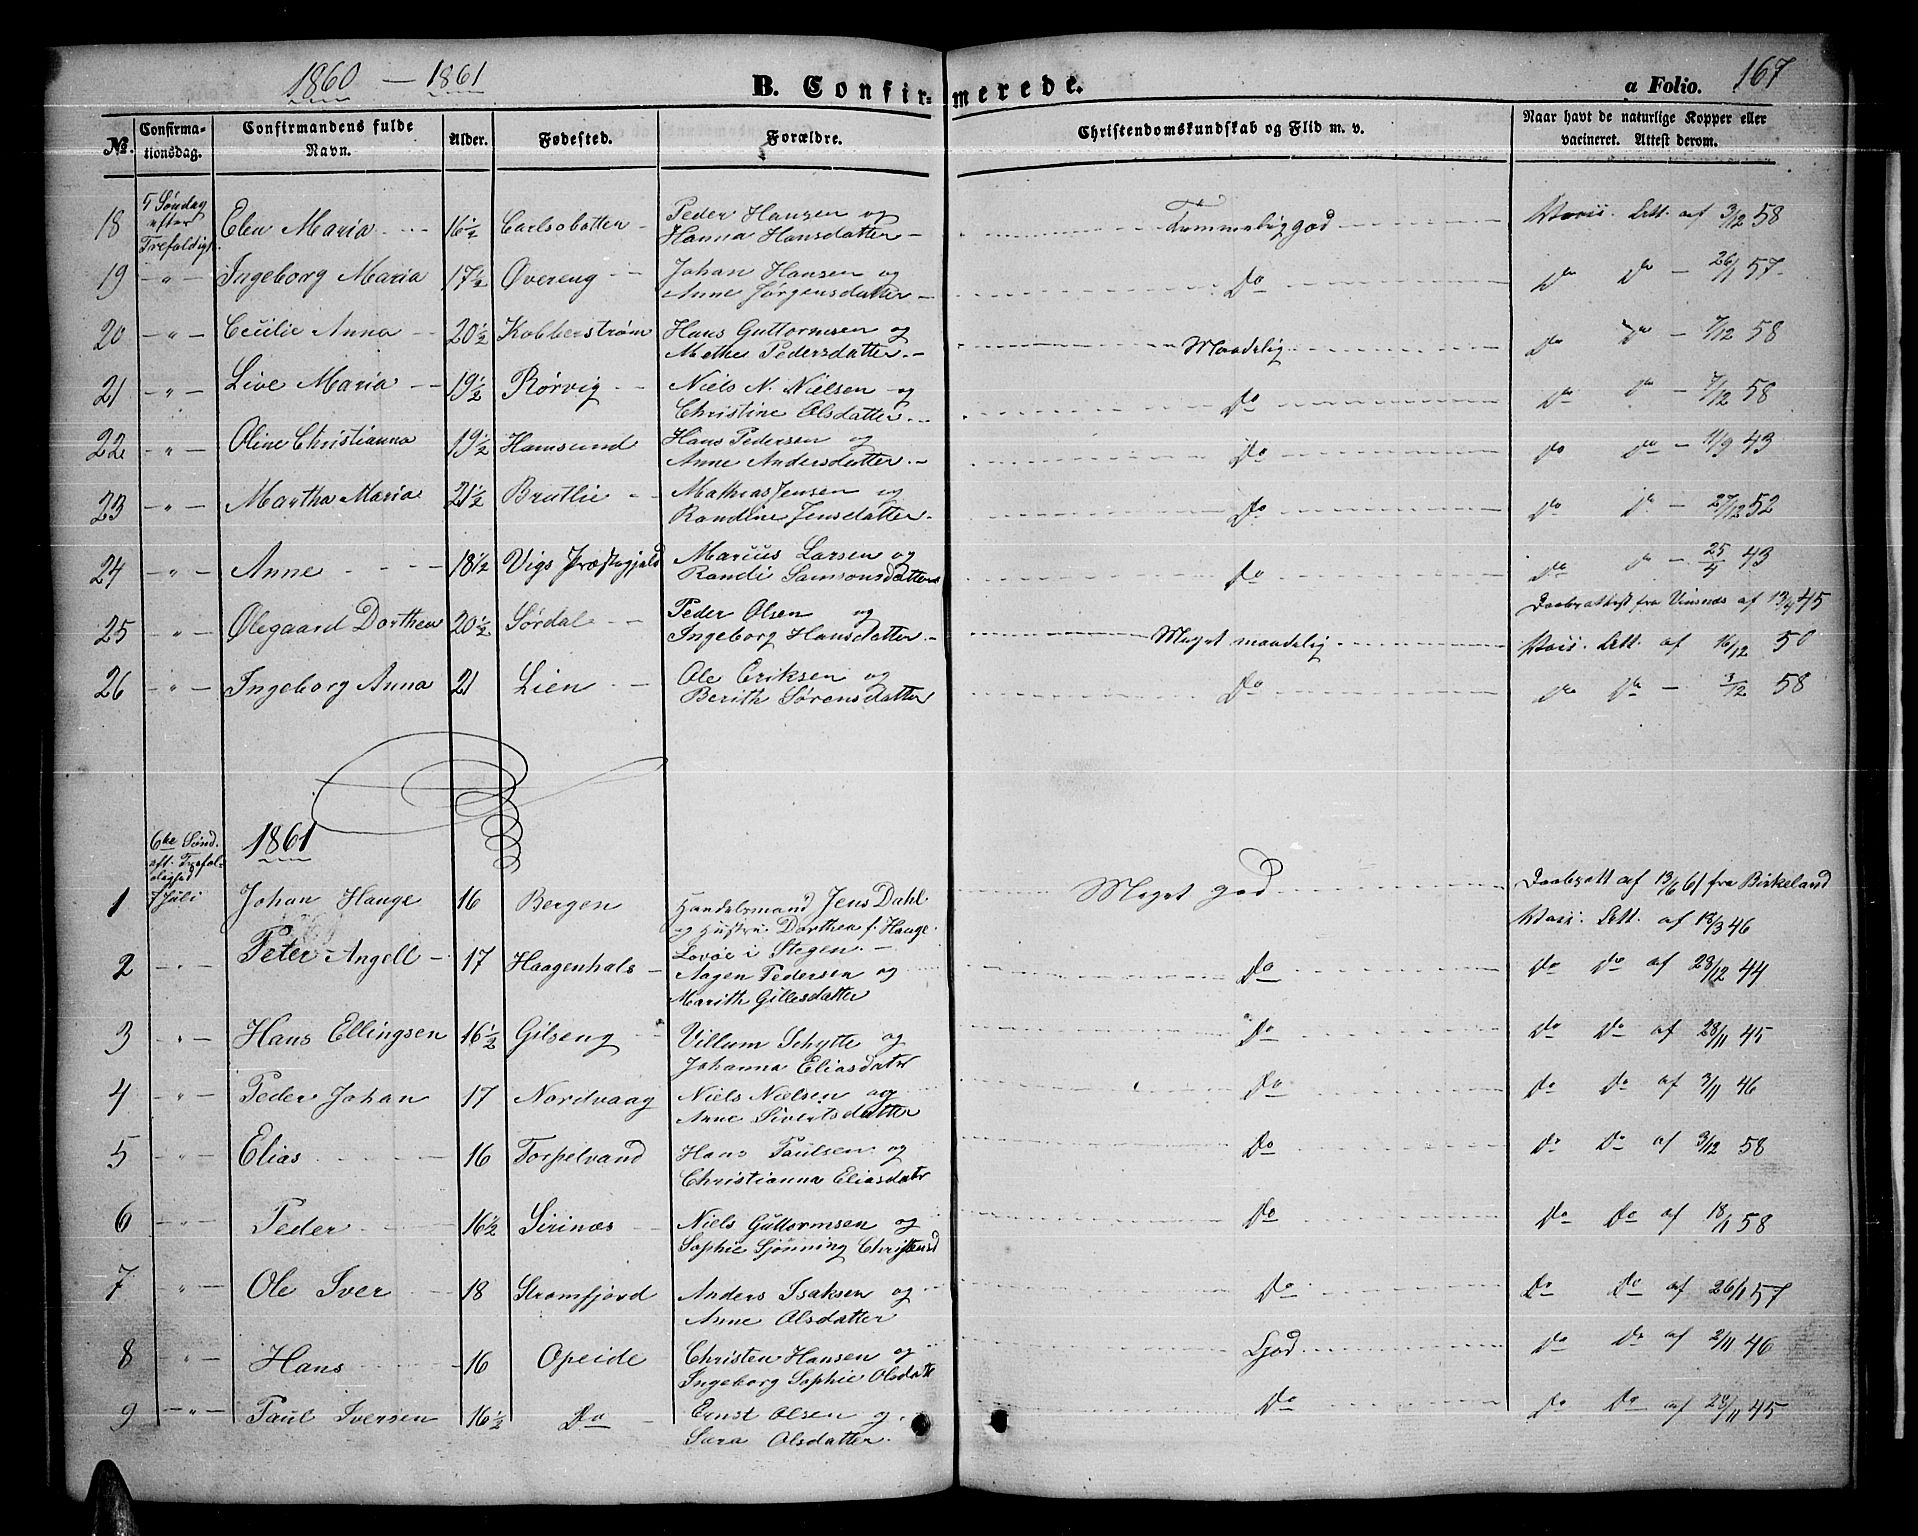 1860 — 1861
B. Confirmerede.
a Folio. 167
№.
Confirma-
tionsdag.
Confirmandens fulde
Navn.
Alder.
Fødested.
Forældre.
Christendomskundskab og Flid m. v.
Naar havt de naturlige Kopper eller
vacineret. Attest derom.
18 5 Søndag efter Trefoldigh. Elen Maria 16½ Carlsobotten Peder Hansen og Hanna Hansdatter Temmelig god Att. af 3/12 58
19 " Ingeborg Maria 17½ Øvereng Johan Hansen og Anne Jørgensdatter Do Do Do 26/1 57
20 " Cecilie Anna 20½ Kobberstrøm Hans Guttormsen og Methe Pedersdatter Maadelig Do Do 7/12 58
21 " Live Maria 19½ Rørvig Niels N. Nielsen og Christine Olsdatter Do Do Do 7/12 58
22 " Oline Christianna 19½ Hamsund Hans Pedersen og Anne Andersdatter Do Do Do 11/9 43
23 " Martha Maria 21½ Bratlie Mathias Jensen og Randine Jensdatter Do Do Do 27/12 52
24 " Anne 18½ Vigs Præstegjæld Marius Larsen og Randi Samsonsdatter Do Do Do 25/4 43
25 " Olegaard Dorthea 20½ Sørdal Peder Olsen og Ingeborg Hansdatter Meget maadelig Daabsattest fra af 13/9 45 Att. af 16/12 50
26 " Ingeborg Anna 21 Lien Ole Eriksen og Berith Sørensdatter Do Do Do 3/12 58
1861
1 6te Sønd. eft. Trefoldighed 7 Juli Johan Hauge 16 Bergen Handelsmand Jens Dahl og Hustru Dorthea f. Hauge Lovøe i Stegen Meget god Daabsatt af 13/6 61 fra Birkeland Att. af 13/3 46
2 " Peter Angell 17 Haagenhals Aagen Pedersen og Marith Gillesdatter Do Do Do af 28/12 44
3 " Hans Ellingsen 16½ Gilseng Villum Schytte og Johanna Eliasdatr Do Do Do af 28/11 45
4 " Peder Johan 17 Nordvaag Niels Nielsen og Anne Sivertsdatter Do Do Do af 3/11 46
5 " Elias 16 Torpelvand Hans Paulsen og Christianna Eliasdatr Do Do Do af 3/12 58
6 " Peder 16½ Sirinæs Niels Guttormsen og Sophie Sjønning Christensd Do Do Do af 18/1 58
7 " Ole Iver 18 Strømfjord Anders Isaksen og Anne Olsdatter Do Do Do af 26/1 57
8 " Hans 16 Opeide Christen Hansen og Ingeborg Sophie Olsdatt God Do Do af 2/11 46
9 " Paul Iversen 16½ Do Ernst Olsen og Sara Olsdatter Do Do Do af 28/11 45